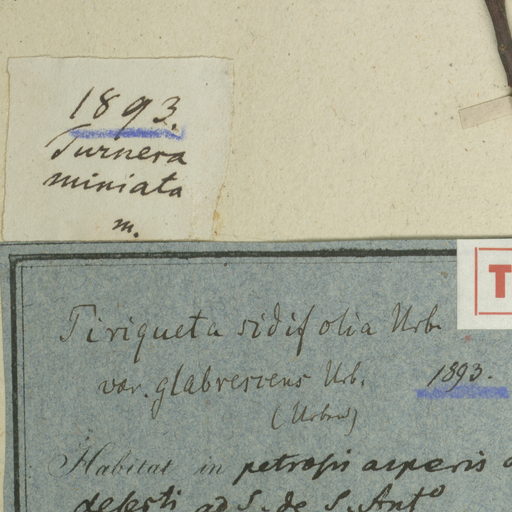 1893.
Turnera
miniata
m.
T
Piriqueta sidifolia Urb.
var. glabrescens Urb.
1893.
(Urban)
Habitat in petrosis asperis
deserti ad S. de S. Antº